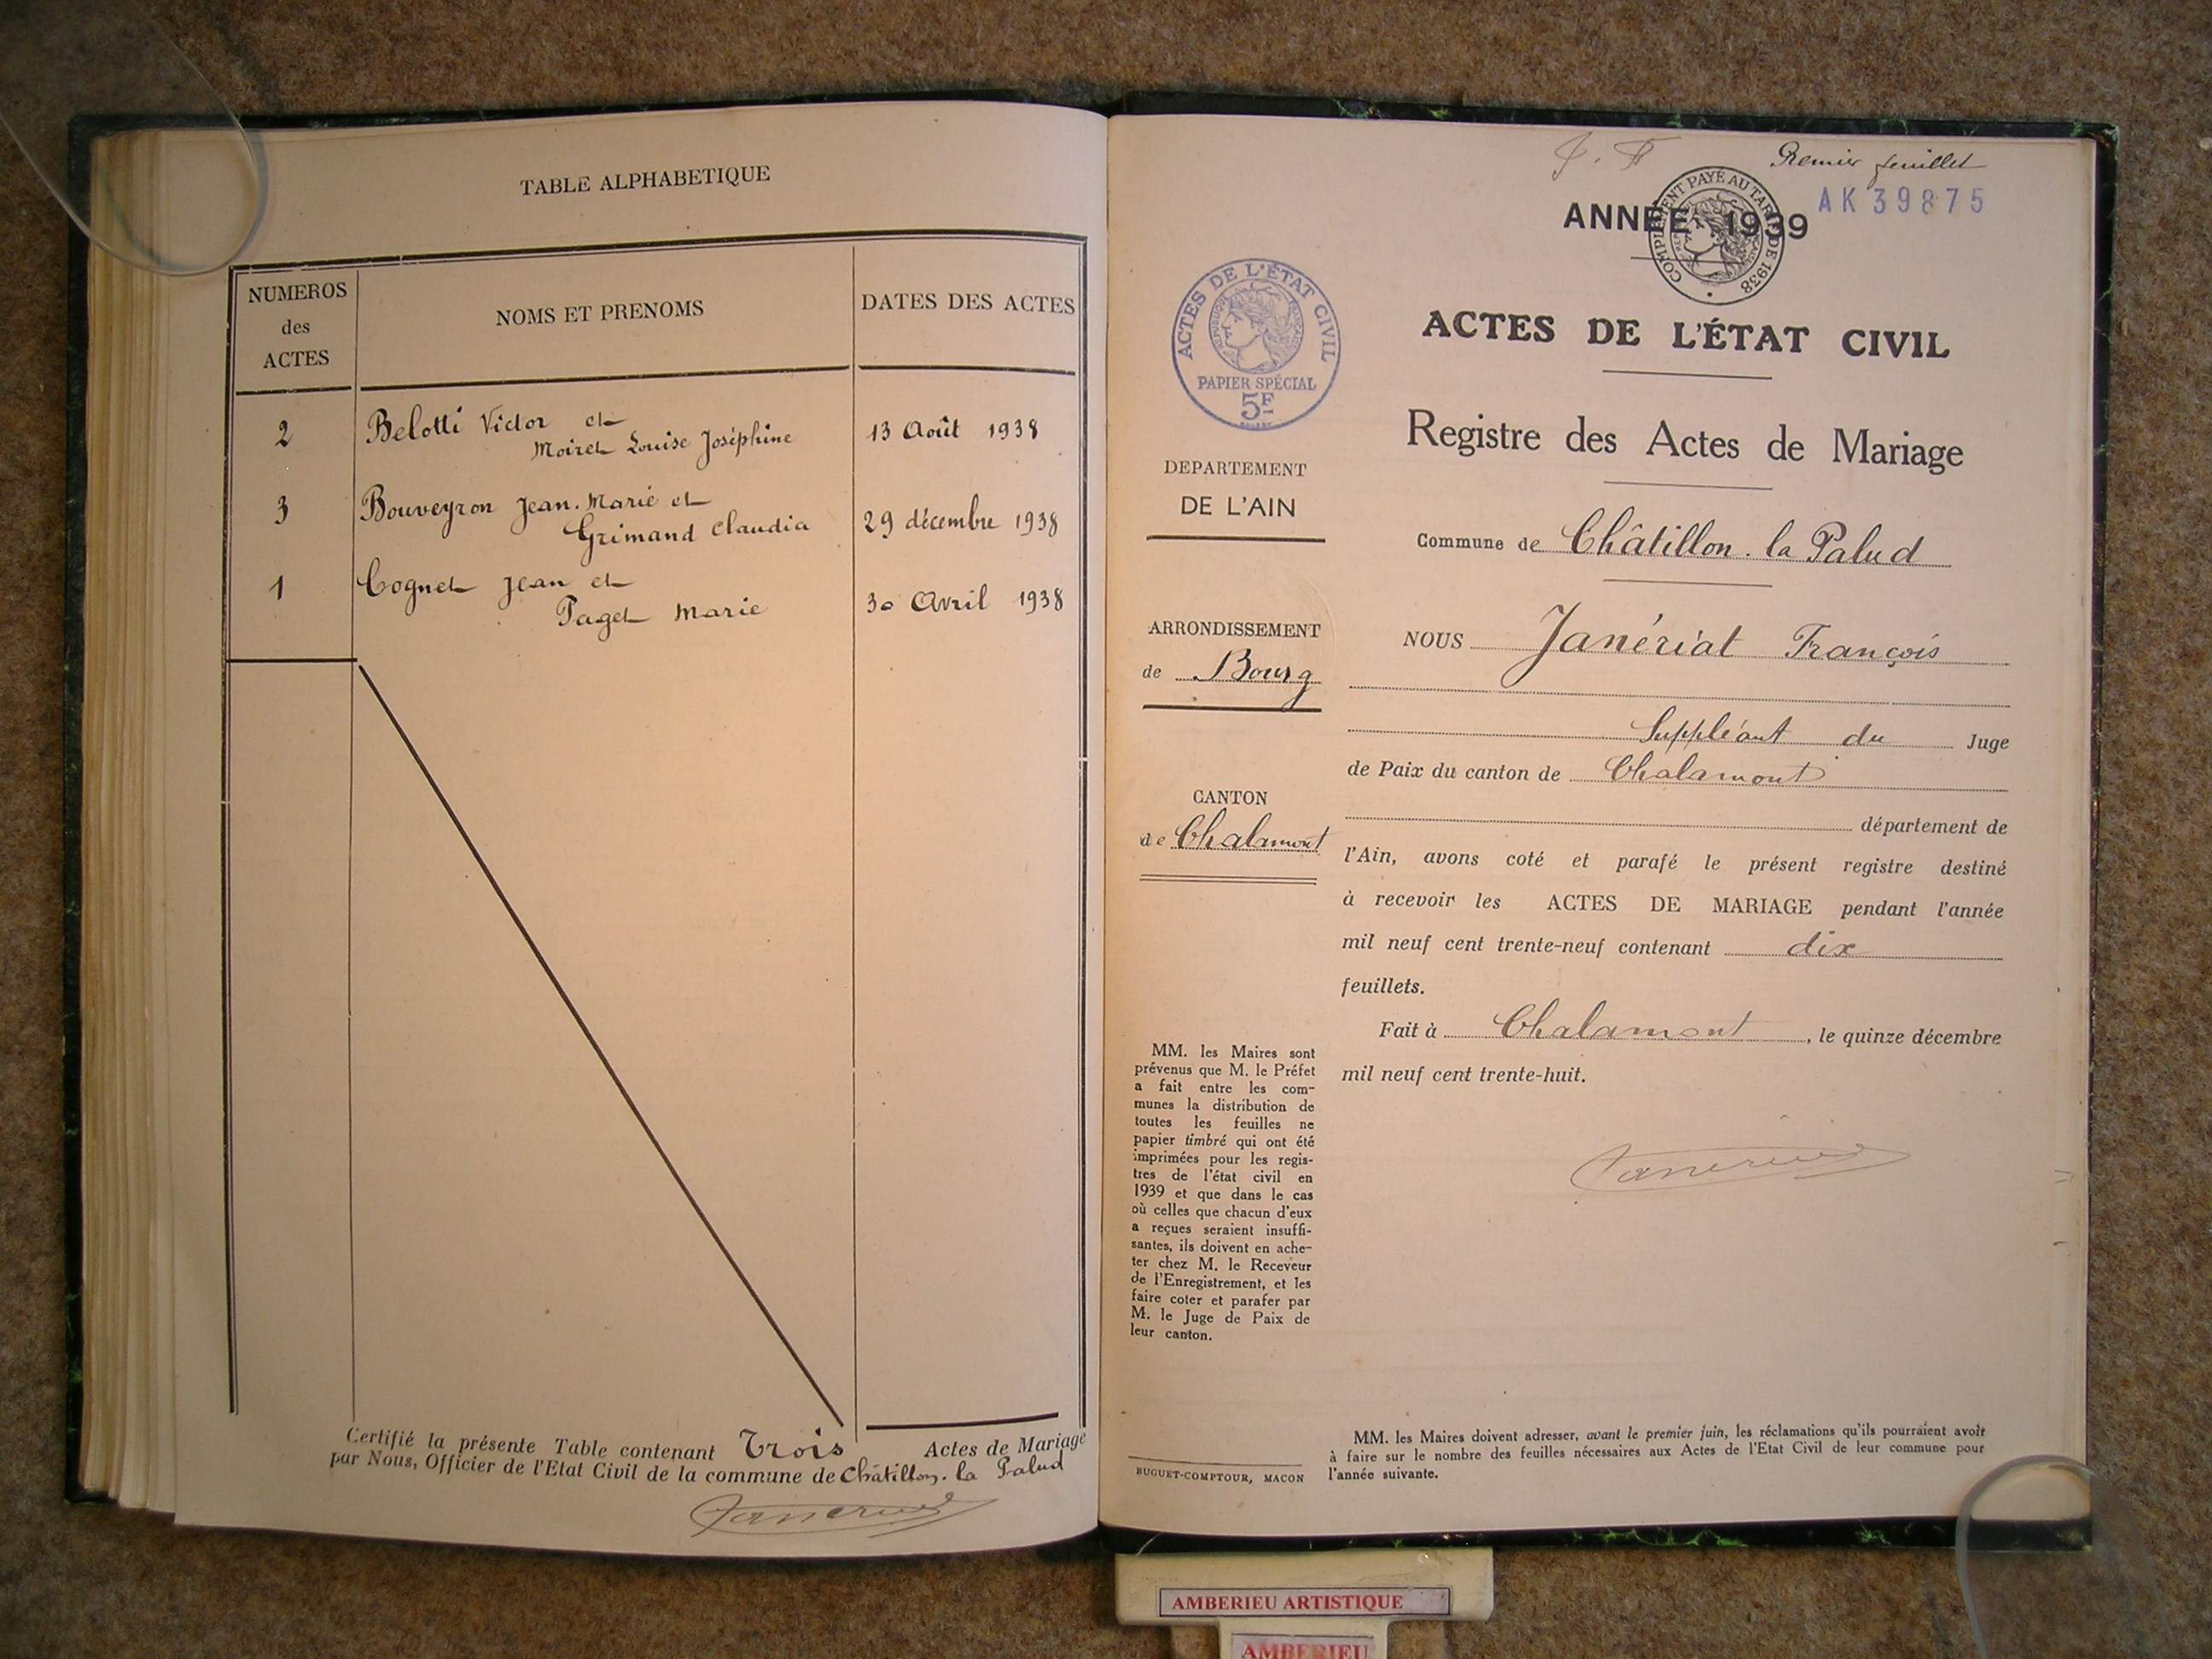 TABLE ALPHABETIQUE
NUMEROS
des
ACTES
NOMS ET PRENOMS
DATES DES ACTES
2 Belotti Victor et
Moiret Louise Joséphine 13 Août 1938
3 Bouveyron Jean-Marie et
Grimand Claudia 29 décembre 1938
1 Cognet Jean et
Paget Marie 30 Avril 1938
Certifié la présente Table contenant Trois Actes de Mariage
par Nous, Officier de l'Etat Civil de la commune de Châtillon-la Palud
Premier feuillet
AK39875
COMPLÉMENT PAYÉ AU TARIF DE 1938
ANNÉE 1939
ACTES DE L'ÉTAT CIVIL
RÉPUBLIQUE FRANÇAISE
PAPIER SPÉCIAL
5F
ACTES DE L'ÉTAT CIVIL
Registre des Actes de Mariage
DEPARTEMENT
DE L'AIN
Commune de Châtillon-la Palud
ARRONDISSEMENT
de Bourg
CANTON
de Chalamont
NOUS Janériat François
Suppléant du Juge
de Paix du canton de Chalamont
département de
l'Ain, avons coté et parafé le présent registre destiné
à recevoir les ACTES DE MARIAGE pendant l'année
mil neuf cent trente-neuf contenant dix
feuillets.
Fait à Chalamont, le quinze décembre
mil neuf cent trente-huit.
MM. les Maires sont
prévenus que M. le Préfet
a fait entre les com-
munes la distribution de
toutes les feuilles ne
papier timbré qui ont été
imprimées pour les regis-
tres de l'état civil en
1939 et que dans le cas
où celles que chacun d'eux
a reçues seraient insuffi-
santes, ils doivent en ache-
ter chez M. le Receveur
de l'Enregistrement, et les
faire coter et parafer par
M. le Juge de Paix de
leur canton.
BUGUET-COMPTOUR, MACON
MM. les Maires doivent adresser, avant le premier juin, les réclamations qu'ils pourraient avoit
à faire sur le nombre des feuilles nécessaires aux Actes de l'Etat Civil de leur commune pour
l'année suivante.
AMBERIEU ARTISTIQUE
AMBERIEU